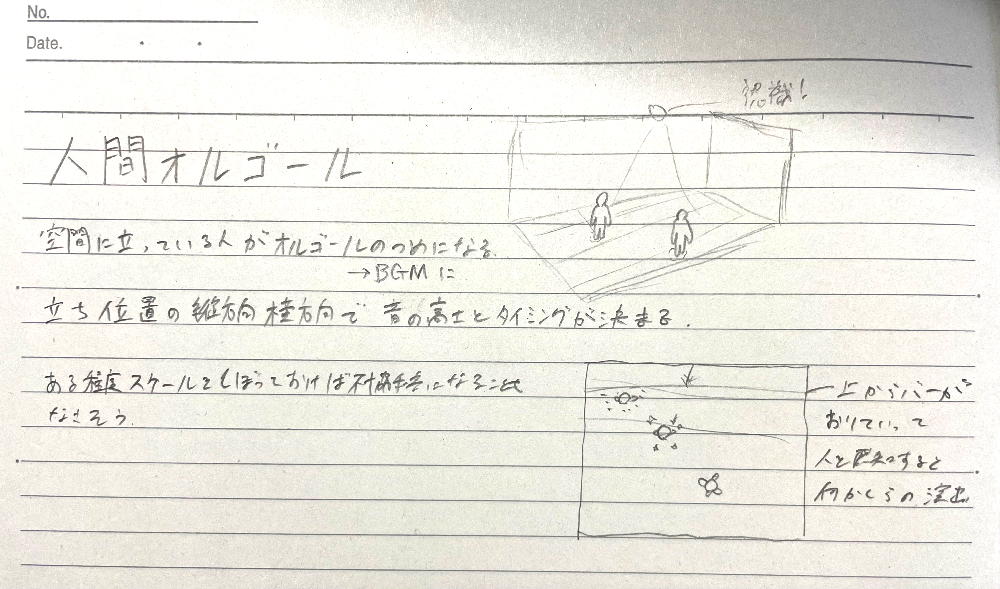 No.
Date.
認識!
人間オルゴール
空間に立っている人がオルゴールのつめになる。
→BGMに
立ち位置の縦方向 横方向で 音の高さとタイミングが決まる。
ある程度スケールをしぼっておけば不協和音になることも
なさそう。
上からバーが
おりていって
人を感知すると
何かしらの演出